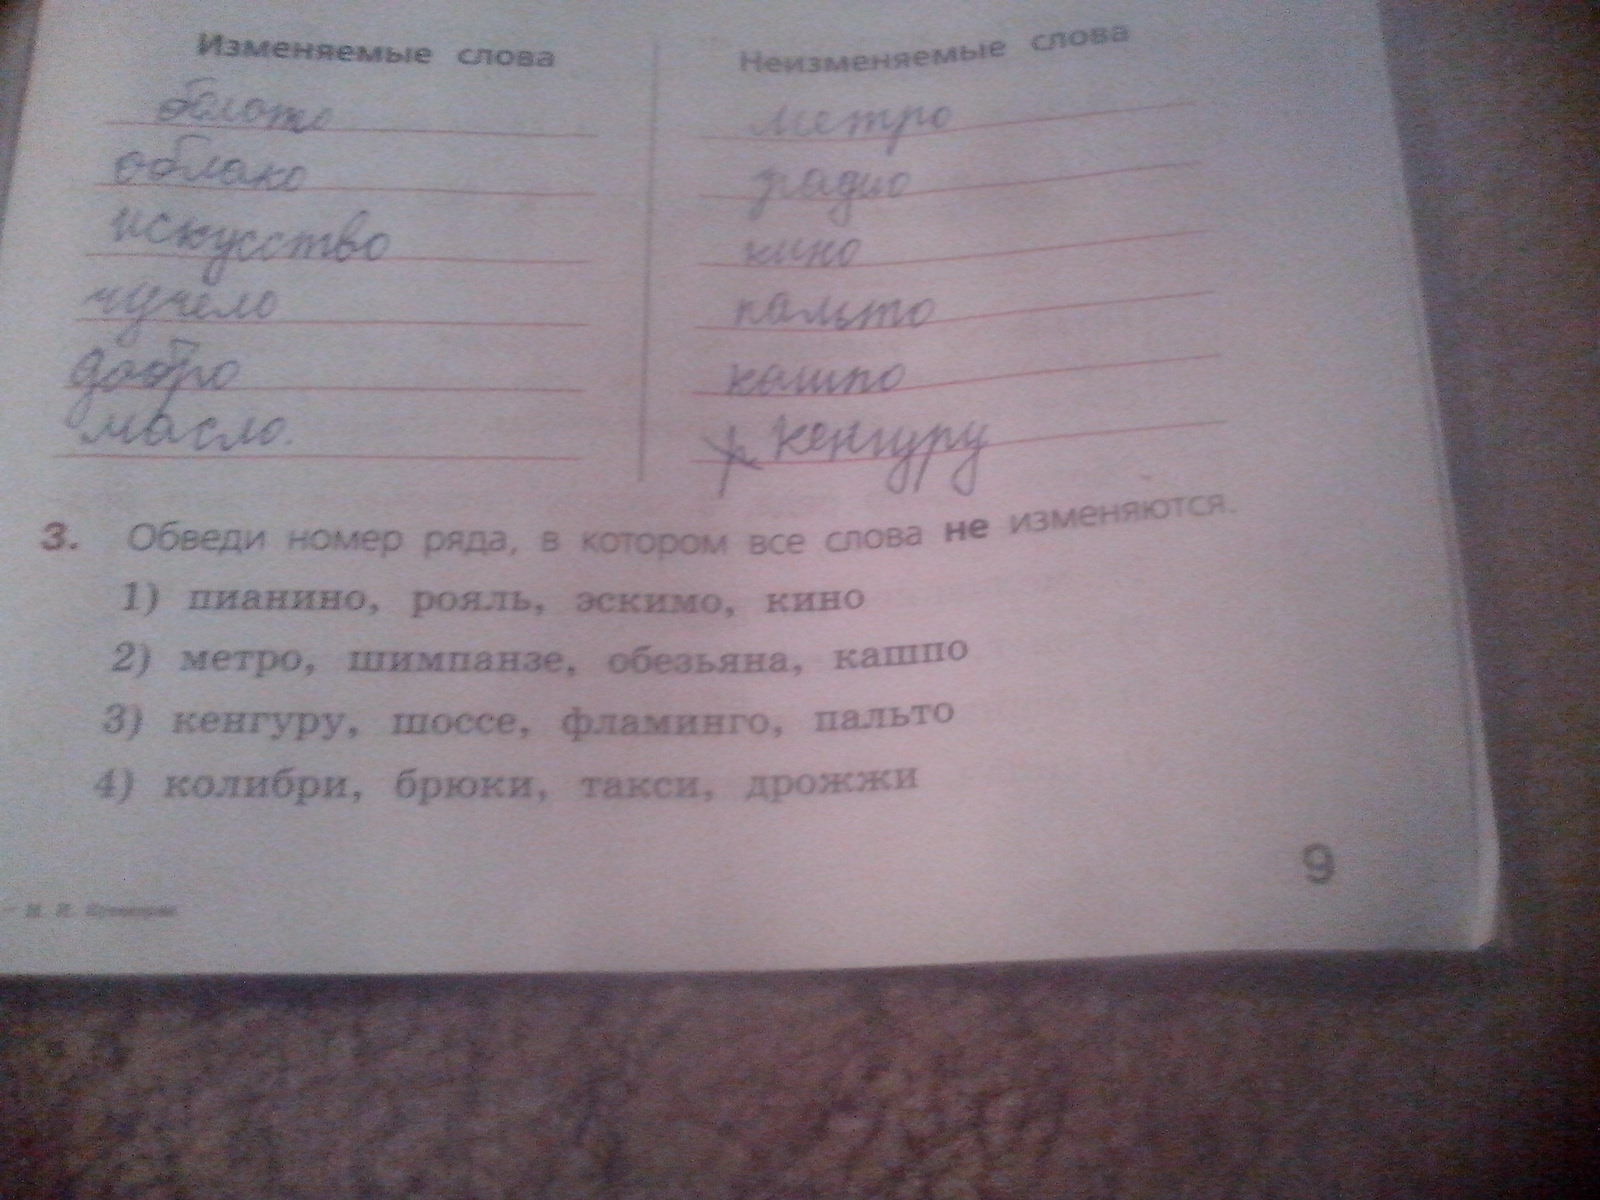 Изменяемые слова
болото
облако
искусство
чучело
добро
масло.
Неизменяемые слова
метро
радио
кино
пальто
кашпо
кенгуру
3. Обведи номер ряда, в котором все слова не изменяются.
1) пианино, рояль, эскимо, кино
2) метро, шимпанзе, обезьяна, кашпо
3) кенгуру, шоссе, фламинго, пальто
4) колибри, брюки, такси, дрожжи
9